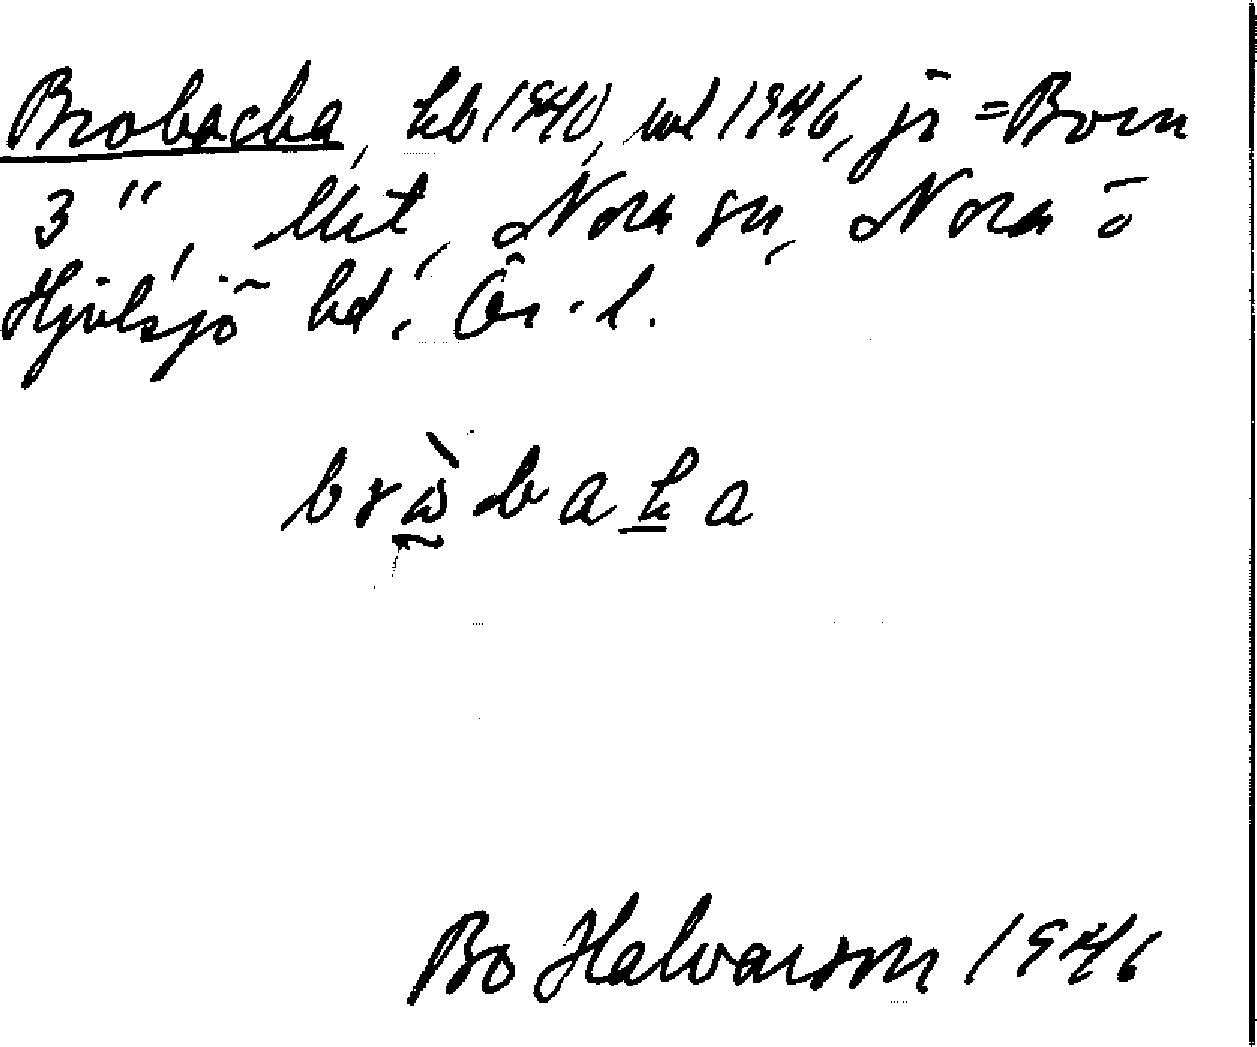 Brobacka, kb 1940, wl 1946, jr = Born
3 ", lht, Nora sn, Nora o
Hjulsjö hd, Ör. l.
bròbaka
Bo Halvarson 1946